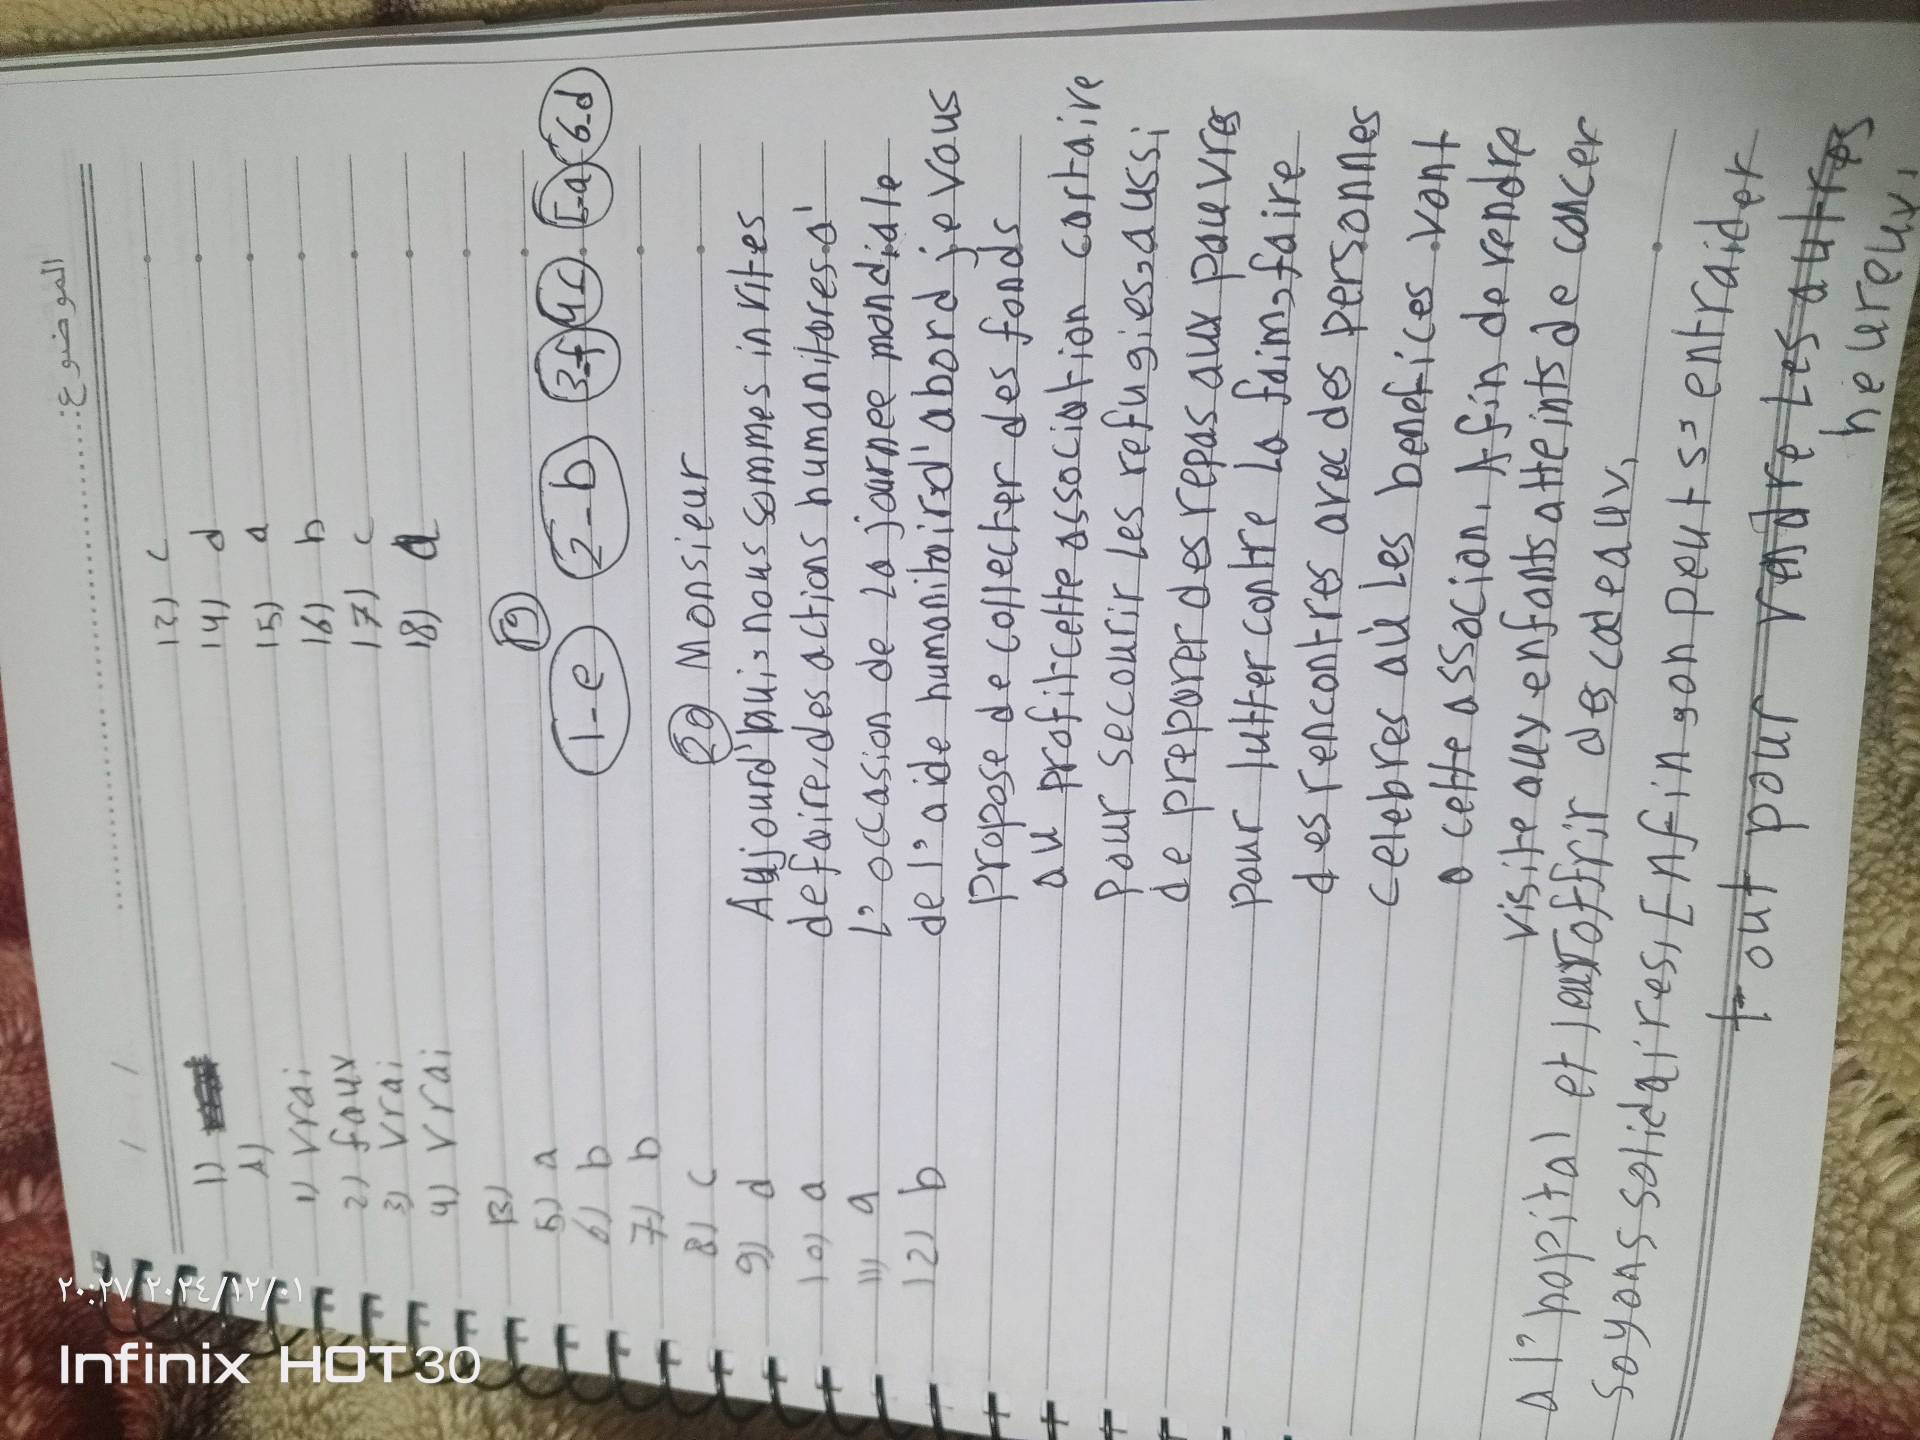 الموضوع:
/ /
1)
A)
1) Vrai
2) faux
3) Vrai
4) Vrai
B)
5) a
6) b
7) b
8) c
9) d
10) a
11) a
12) b
13) c
14) d
15) a
16) b
17) c
18) a
19)
1-e 2-b 3-f 4-c 5-a 6-d
20) Monsieur
Aujourd'hui, nous sommes invites
de faire des actions humanitares a'
L'occasion de La journee mondiale
de l'aide humanitaire d'abord je vous
propose de collecter des fonds
au profit cette association caritaire
Pour secourir Les refugies, aussi
de preparer des repas aux pauvres
pour lutter contre La faim, faire
des rencontres avec des personnes
celebres où Les benefices vont
a cette assacion. Afin de rendre
visite aux enfants atteints de cancer
a l'hopital et leur offrir des cadeaux.
Soyons solidaires, Enfin, on peut s'entraider
tout pour rendre Les autres
heureux.
٢٠:٢٧ ٢٠٢٤/١٢/٠١
Infinix HOT 30